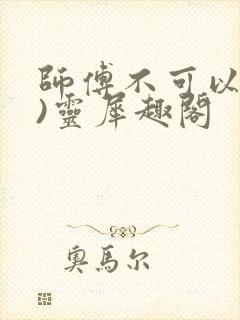 師傅不可以
)靈犀趣閣
奧馬尔